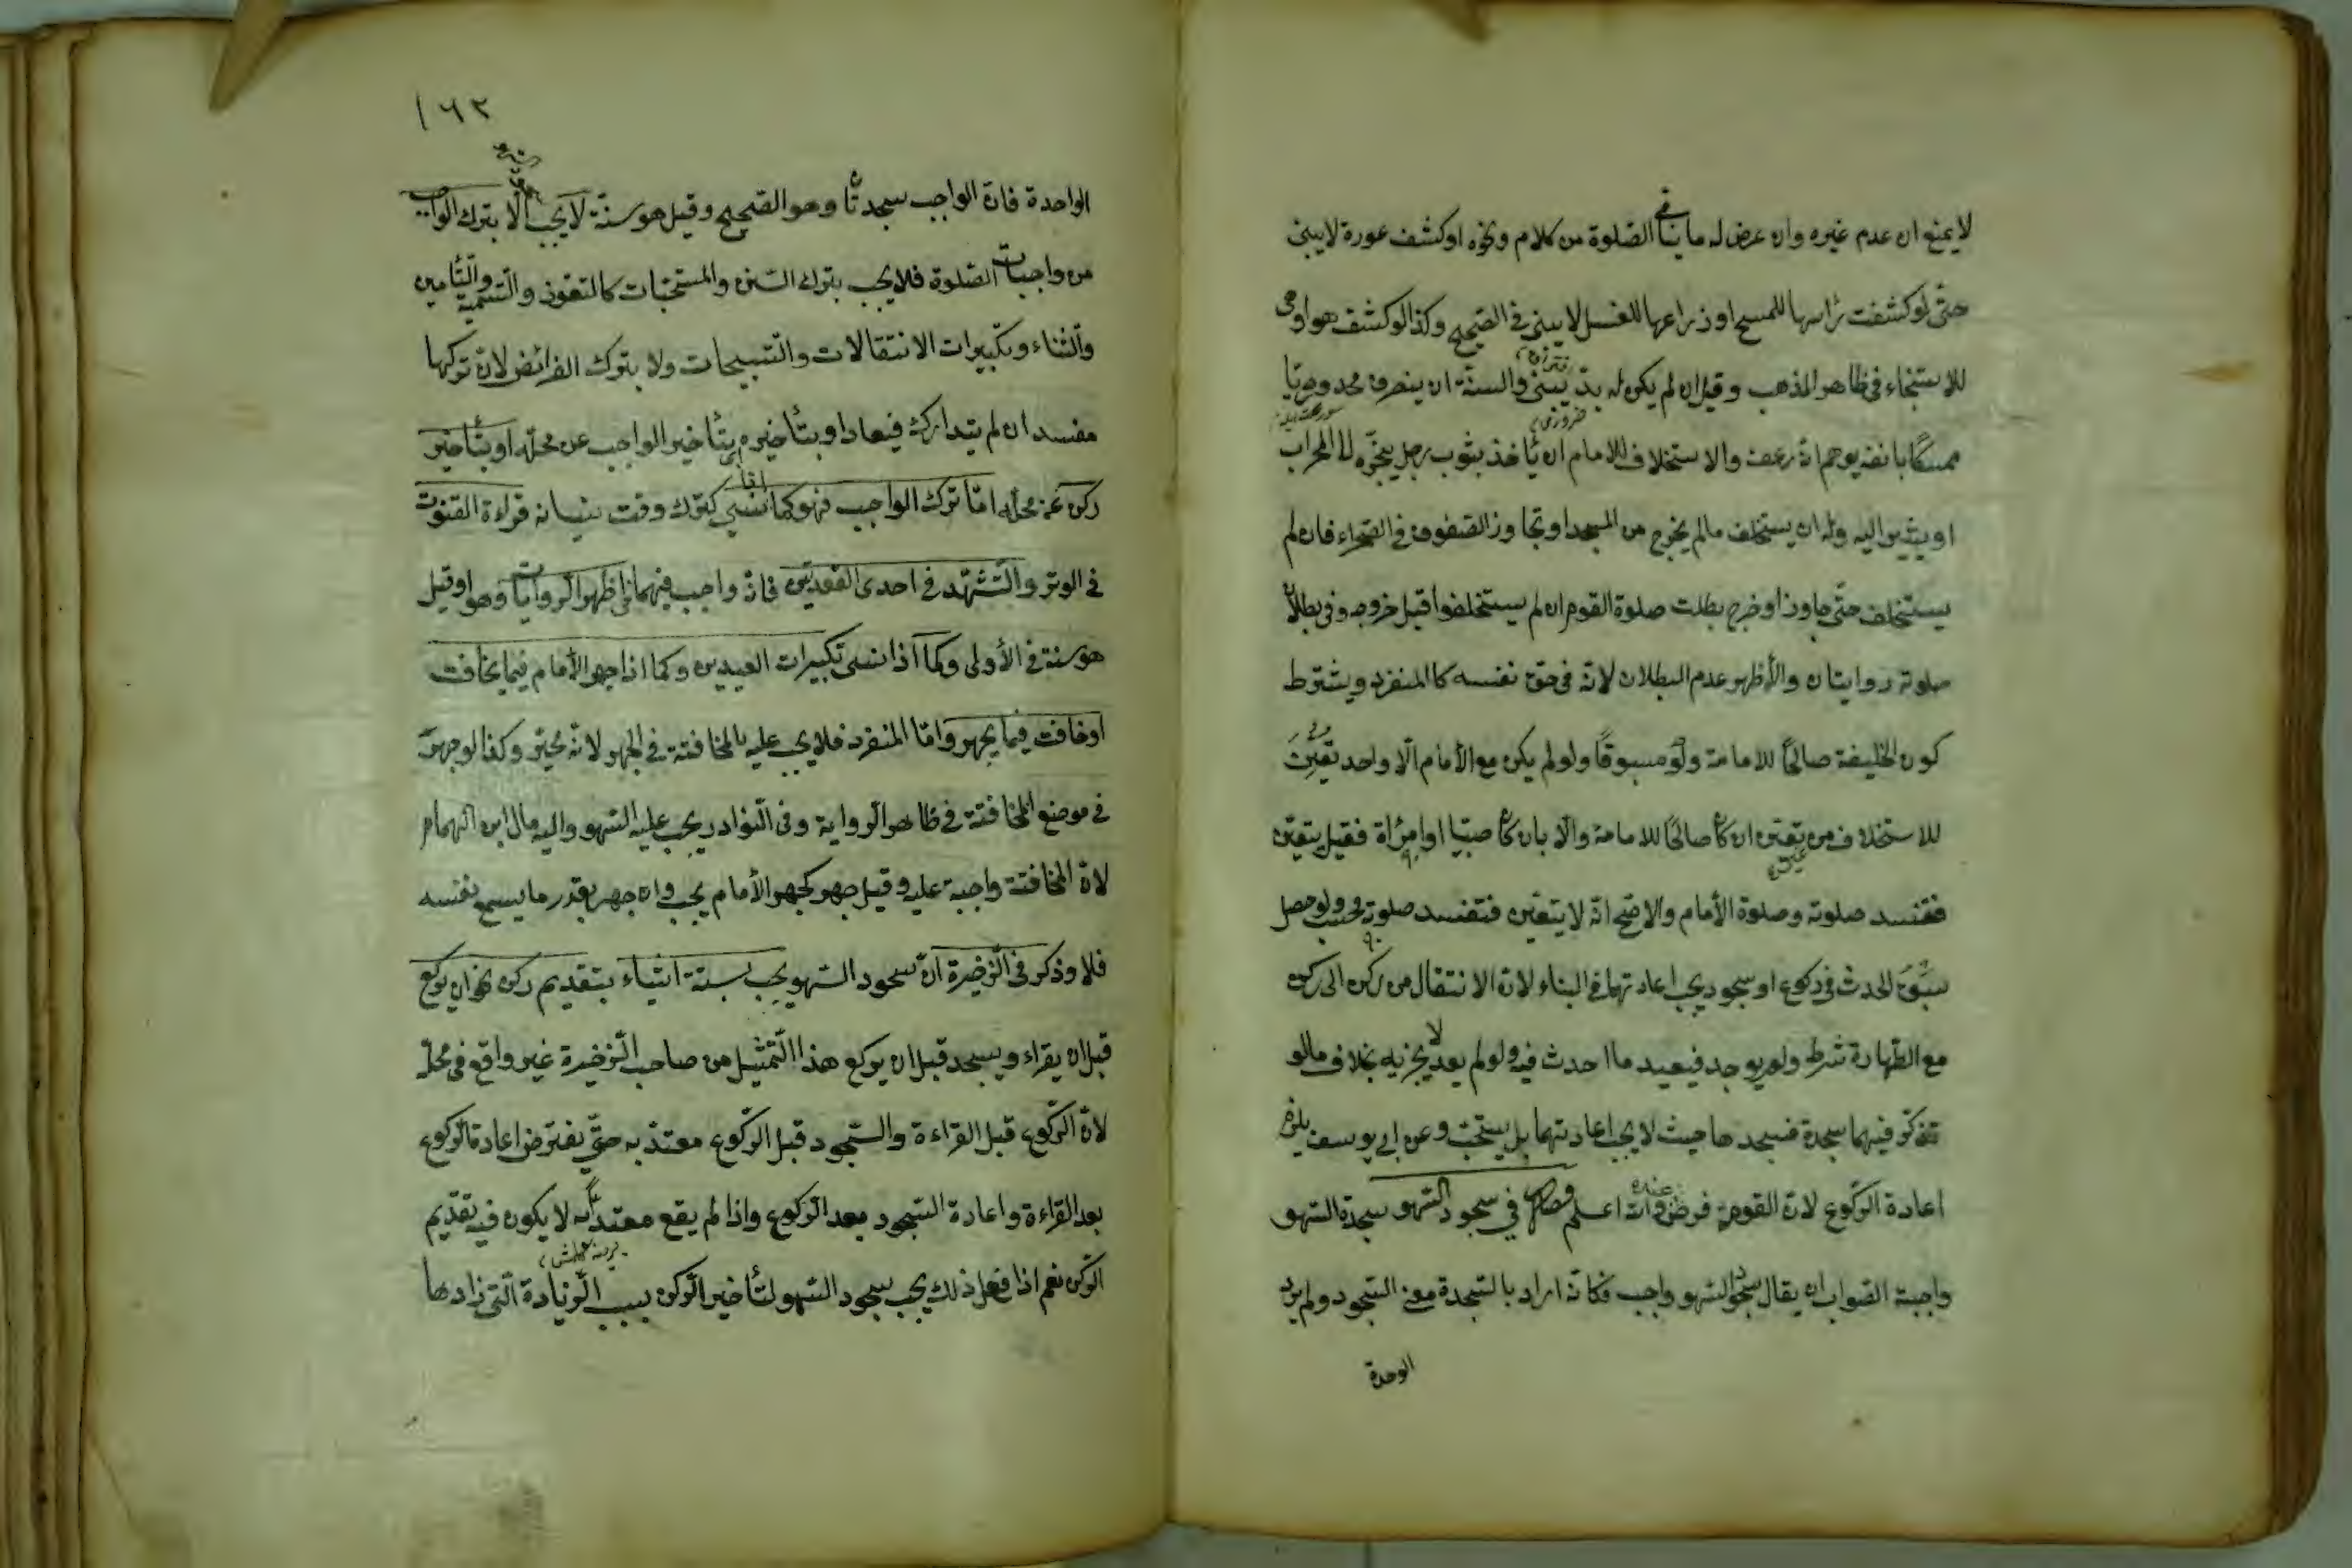 لا يمنع ان عدم غيره وان عرض له ما ينافي الصلوة من كلام ونحوه او كشف عورة لا يبنى
حتى لو كشفت رأسها للمسح او ذراعها للغسل لا يبنى في الصحيح وكذا لو كشف هو او هى
للاستنجاء فى ظاهر المذهب وقيل ان لم يكن له بدّ يبنى والسنة ان ينصرف محدودبا
ممسكًا بانفه يوهم انه رعف والاستخلاف للامام ان يأخذ بثوب رجل يجرّه الى المحراب
او يشير اليه وله ان يستخلف ما لم يخرج من المسجد او تجاوز الصفوف فى الصحراء فان لم
يستخلف حتى جاوز او خرج بطلت صلوة القوم ان لم يستخلفوا قبل خروجه وفى بطلان
صلوته روايتان والأظهر عدم البطلان لانه فى حق نفسه كالمنفرد ويشترط
كون الخليفة صالحًا للامامة ولو مسبوقًا ولو لم يكن مع الأمام الّا واحد تعيّن
للاستخلاف من تعيّن ان كان صالحًا للامامة والّا بان كان صبيّا او امرأة فقيل يتعيّن
فتفسد صلوته وصلوة الأمام والاصح انه لا يتعيّن فتفسد صلوته فحسب ولو حصل
سبق الحدث فى ركوع او سجود يجب اعادتهما فى البناء لانّ الانتقال من ركن الى ركن
مع الطهارة شرط ولم يوجد فيعيد ما احدث فيه ولو لم يعد لا يجزيه بخلاف ما لو
تذكّر فيهما سجدة فسجدها حيث لا يجب اعادتهما بل يستحبّ وعن ابى يوسف يلزم
اعادة الرّكوع لانّ القومة فرض عنده والله اعلم فصل في سجود السّهو سجدة السّهو
واجبة الصّواب ان يقال سجود السّهو واجب فكانّه اراد بالسّجدة معنى السّجود ولم يرد
الوحدة
١٦٢
الواحدة فانّ الواجب سجدتان وهو الصّحيح وقيل هو سنّة لا يجب الّا بترك الواجب
من واجبات الصّلوة فلا يجب بترك السّنن والمستحبّات كالتعوّذ والتّسمية والتّأمين
والثّناء وتكبيرات الانتقالات والتّسبيحات ولا بترك الفرائض لانّ تركها
مفسد ان لم يتدارك فيعاد او بتأخيره بتأخير الواجب عن محلّه او بتأخير
ركن عن محلّه امّا ترك الواجب فهو كما نسي كترك وقت نسيانه قراءة القنوت
في الوتر والتّشهّد في احدى القعدتين فانّه واجب فيهما في اظهر الروايات وهو او قيل
هو سنة فى الأولى وكما اذا نسى تكبيرات العيدين وكما اذا جهر الأمام فيما يخافت
او خافت فيما يجهر وامّا المنفرد فلا يجب عليه بالمخافتة فى الجهر لانّه مخيّر وكذا لو جهر
في موضع المخافتة فى ظاهر الرواية وفى النّوادر يجب عليه السّهو واليه مال ابن الهمام
لانّ المخافتة واجبة عليه وقيل جهر كجهر الأمام يجب وان جهر بقدر ما يسمع نفسه
فلا وذكر فى الذّخيرة انّ سجود السّهو يجب بستة اشياء بتقديم ركن نحو ان يركع
قبل ان يقراء ويسجد قبل ان يركع هذا التّمثيل من صاحب الذّخيرة غير واقع فى محلّه
لانّ الرّكوع قبل القراءة والسّجود قبل الرّكوع معتدّ به حتّى يفترض اعادة الرّكوع
بعد القراءة واعادة السّجود بعد الرّكوع واذا لم يقع معتدّا به لا يكون فيه تقديم
الرّكن نعم اذا فعل ذلك يجب سجود السّهو لتأخير الرّكن بسبب الزّيادة الّتى زادها